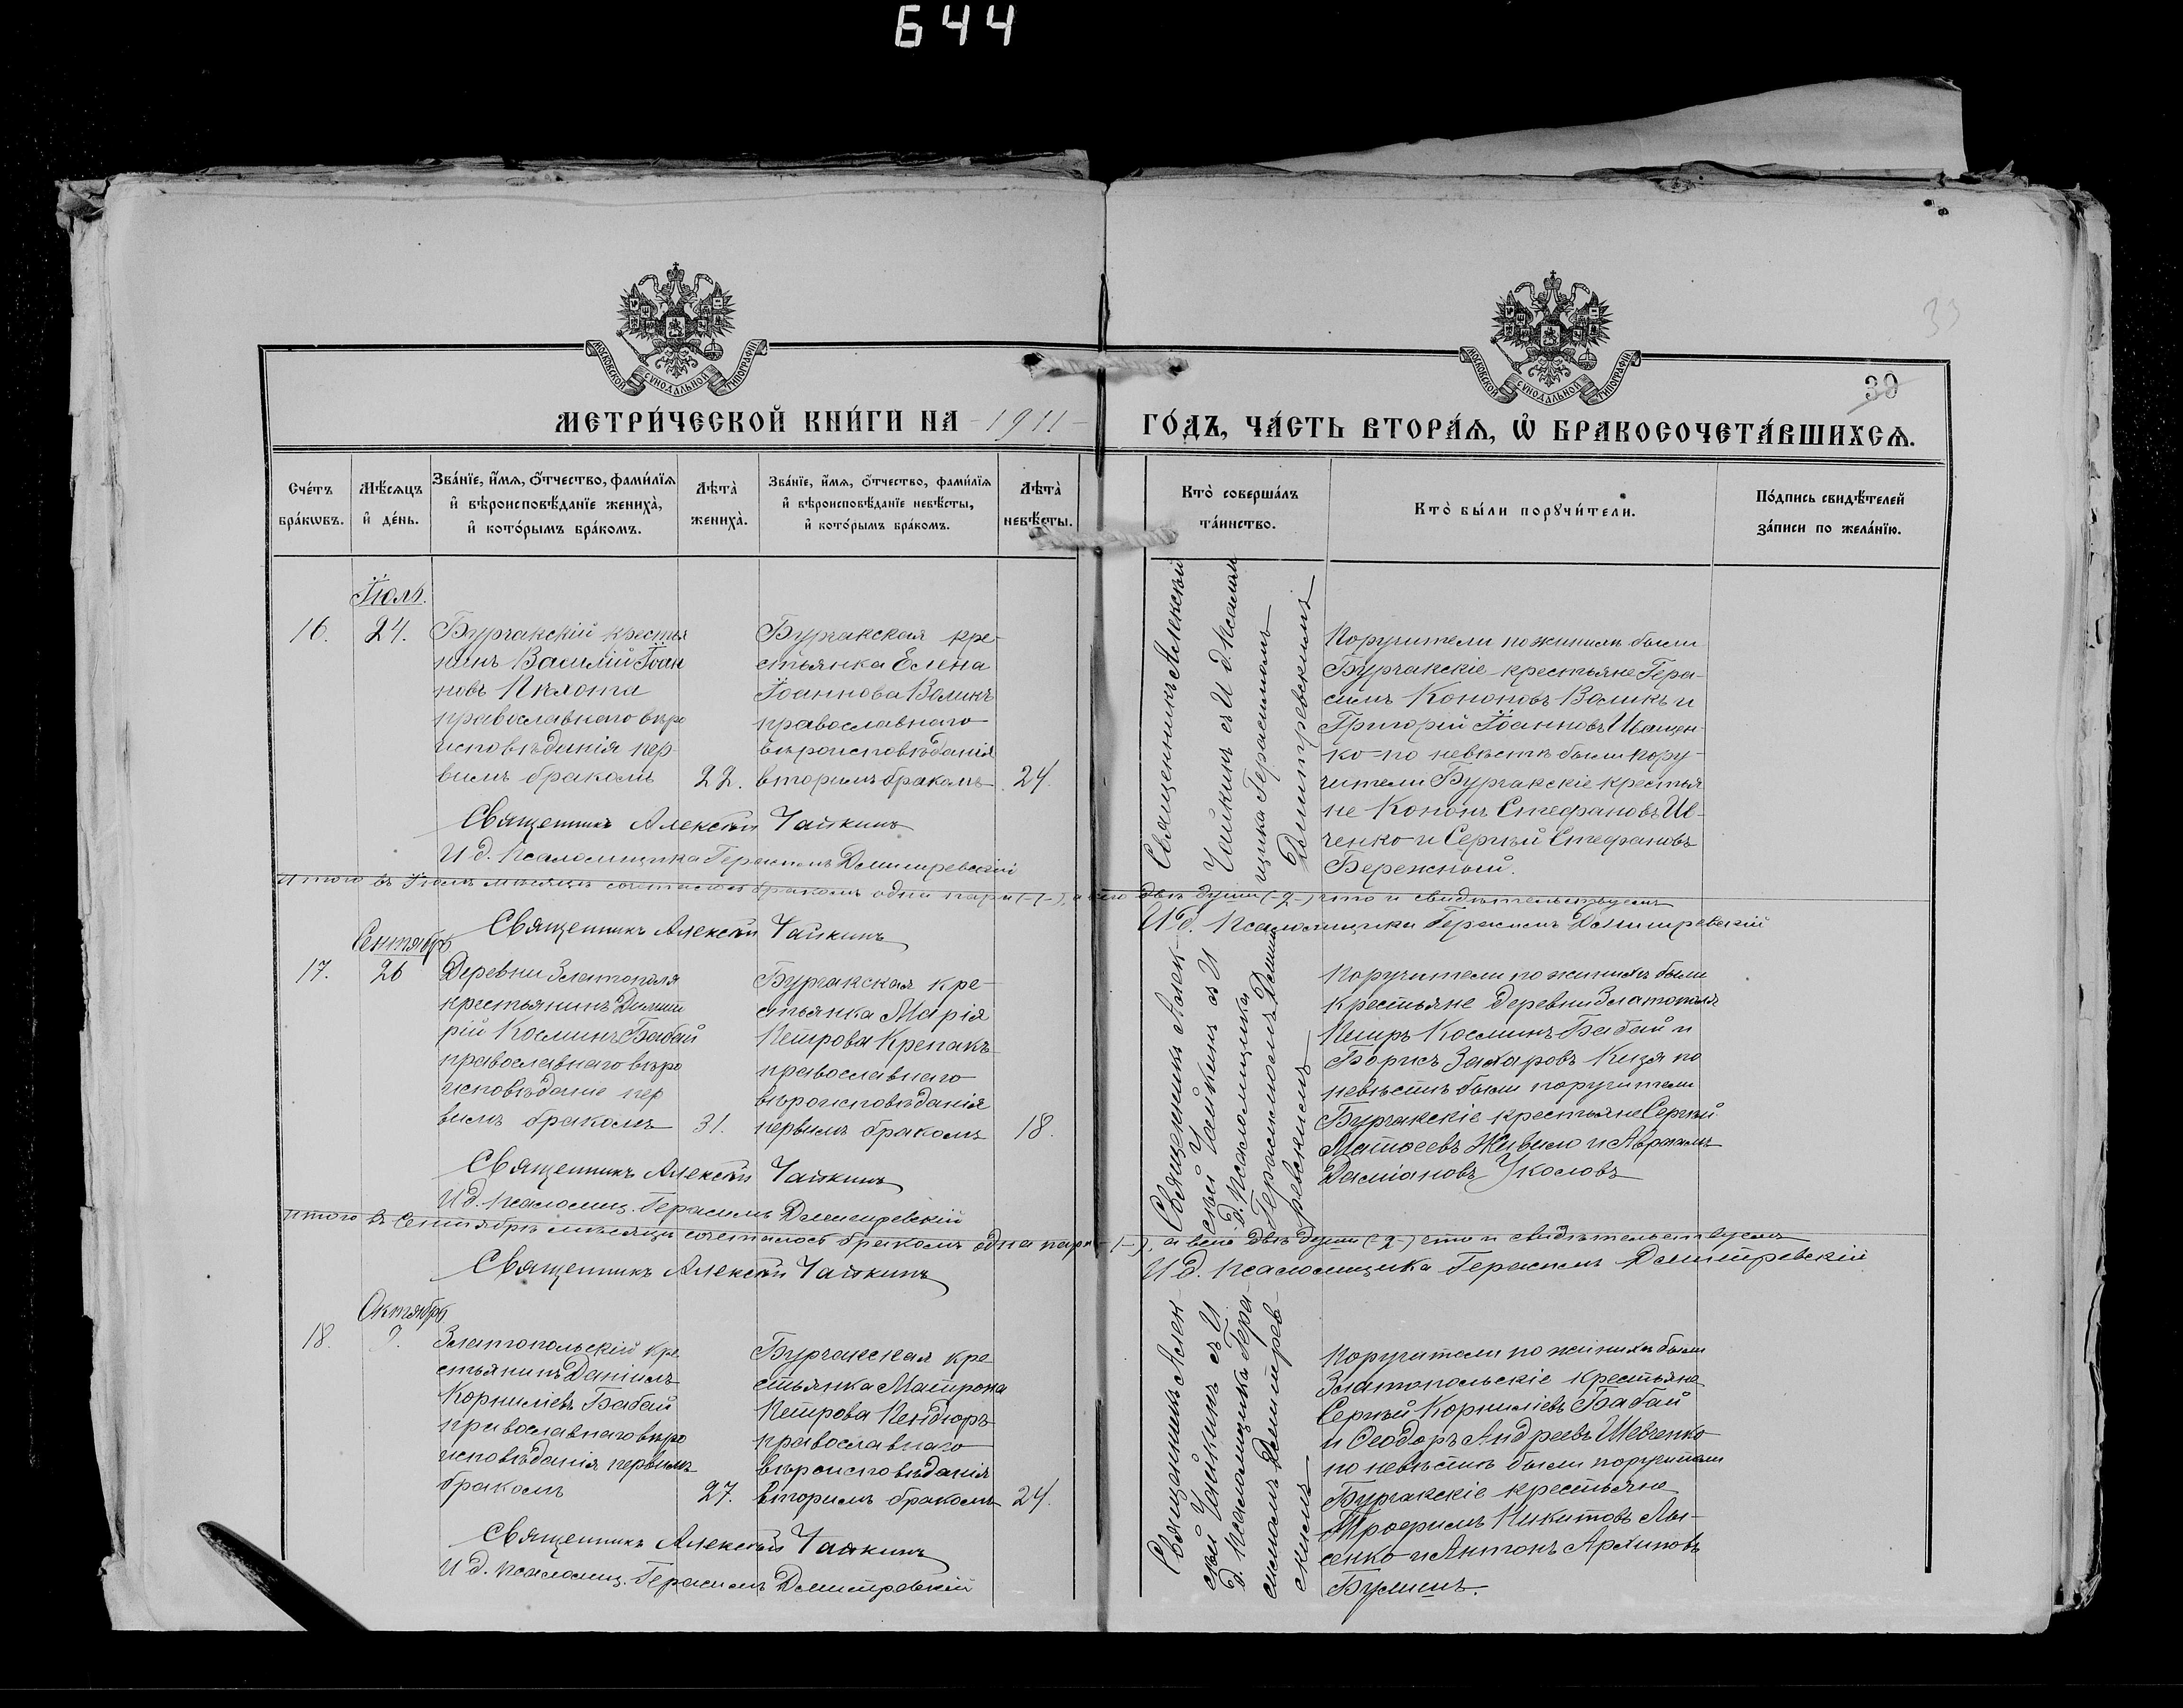 644
МОСКОВСКОЙ СУНОДАЛЬНОЙ ТИПОГРАФІИ
МОСКОВСКОЙ СУНОДАЛЬНОЙ ТИПОГРАФІИ
33
30
МЕТРИ́ЧЕСКОЙ КНИ́ГИ НА -1911- ГО́ДЪ, ЧА́СТЬ ВТОРА́Ѧ, Ѡ БРАКОСОЧЕТА́ВШИХСѦ.
Счéтъ бра́кѡвъ.
Мѣ́сѧцъ и҆ де́нь.
Зва́нїе, и҆́мѧ, ѻ҆́тчество, фами́лїѧ
и҆ вѣроисповѣ́данїе жениха̀,
и҆ кото́рымъ бра́комъ.
Лѣта̀ жениха̀.
Зва́нїе, и҆́мѧ, ѻ҆́тчество, фами́лїѧ
и҆ вѣроисповѣ́данїе невѣ́сты,
и҆ кото́рымъ бра́комъ.
Лѣта̀ невѣ́сты.
Кто̀ соверша́лъ та́инство.
Кто̀ бы́ли порꙋчи́тели.
По́дпись свидѣ́телей
за́писи по жела́нїю.
Іюль.
16.
24.
Бурчакскій крестья
нинъ Василій Іоан
новъ
православнаго вѣро
исповѣданія пер
вымъ бракомъ
22.
Бурчакская кре-
стьянка Елена
Іоаннова Воликъ
православнаго
вѣроисповѣданія
вторымъ бракомъ
24.
Священникъ Алексѣй
Чайкинъ съ И д. псалом
щика Герасимомъ
Димитревскимъ
Поручители по жениху были
Бурчакскіе крестьяне Гера-
симъ Кононовъ Воликъ и
Григорій Іоанновъ Ищен-
ко по невѣстѣ были пору-
чители Бурчакскіе крестья
не Кононъ Стефановъ Ив-
ченко и Сергѣй Стефановъ
Бережный.
Священникъ Алексѣй Чайкинъ
И д. псаломщика Герасимъ Димитревскій
Итого въ Іюлѣ мѣсяцѣ сочеталось бракомъ одна пара (-1-), а всего двѣ души (-2-) что и свидѣтельствуемъ
Священникъ Алексѣй Чайкинъ
И д. псаломщика Герасимъ Димитревскій
Сентябрь
17.
26
Деревни Златополя
крестьянинъ Димит
рій Косминъ Бабай
православнаго вѣро
исповѣданіе пер
вымъ бракомъ
31.
Бурчакская кре-
стьянка Марія
Петрова Крепакъ
православнаго
вѣроисповѣданія
первымъ бракомъ
18.
Священникъ Алек-
сѣй Чайкинъ съ И
д. псаломщика
Герасимомъ Димит
ревскимъ
Поручители по жениху были
крестьяне деревни Златополя
Петръ Косминъ Бабай и
Борисъ Захаровъ Кизя по
невѣстѣ были поручители
Бурчакскіе крестьяне Сергѣй
Матѳеевъ Живило и Авраамъ
Даміановъ Уколовъ
Священникъ Алексѣй Чайкинъ
И д. псаломщ. Герасимъ Димитревскій
Итого въ Сентябрѣ мѣсяцѣ сочеталось бракомъ одна пара (-1-), а всего двѣ души (-2-) что и свидѣтельствуемъ
Священникъ Алексѣй Чайкинъ
И д. псаломщика Герасимъ Димитревскій
Октябрь
18.
9.
Златопольскій кре
стьянинъ Даніилъ
Корниліевъ Бабай
православнаго вѣро
исповѣданія первымъ
бракомъ
27.
Бурчакская кре
стьянка Матрона
Петрова Пендюръ
православнаго
вѣроисповѣданія
вторымъ бракомъ
24.
Священникъ Алек-
сѣй Чайкинъ съ И
д. псаломщика Гера-
симомъ Димитрев-
скимъ
Поручители по жениху были
Златопольскіе крестьяне
Сергѣй Корниліевъ Бабай
и Ѳеодоръ Андреевъ Шевченко
по невѣстѣ были поручители
Бурчакскіе крестьяне
Трофимъ Никитовъ Лы-
сенко и Антонъ Архиповъ
Священникъ Алексѣй Чайкинъ
И д. псаломщ. Герасимъ Димитревскій